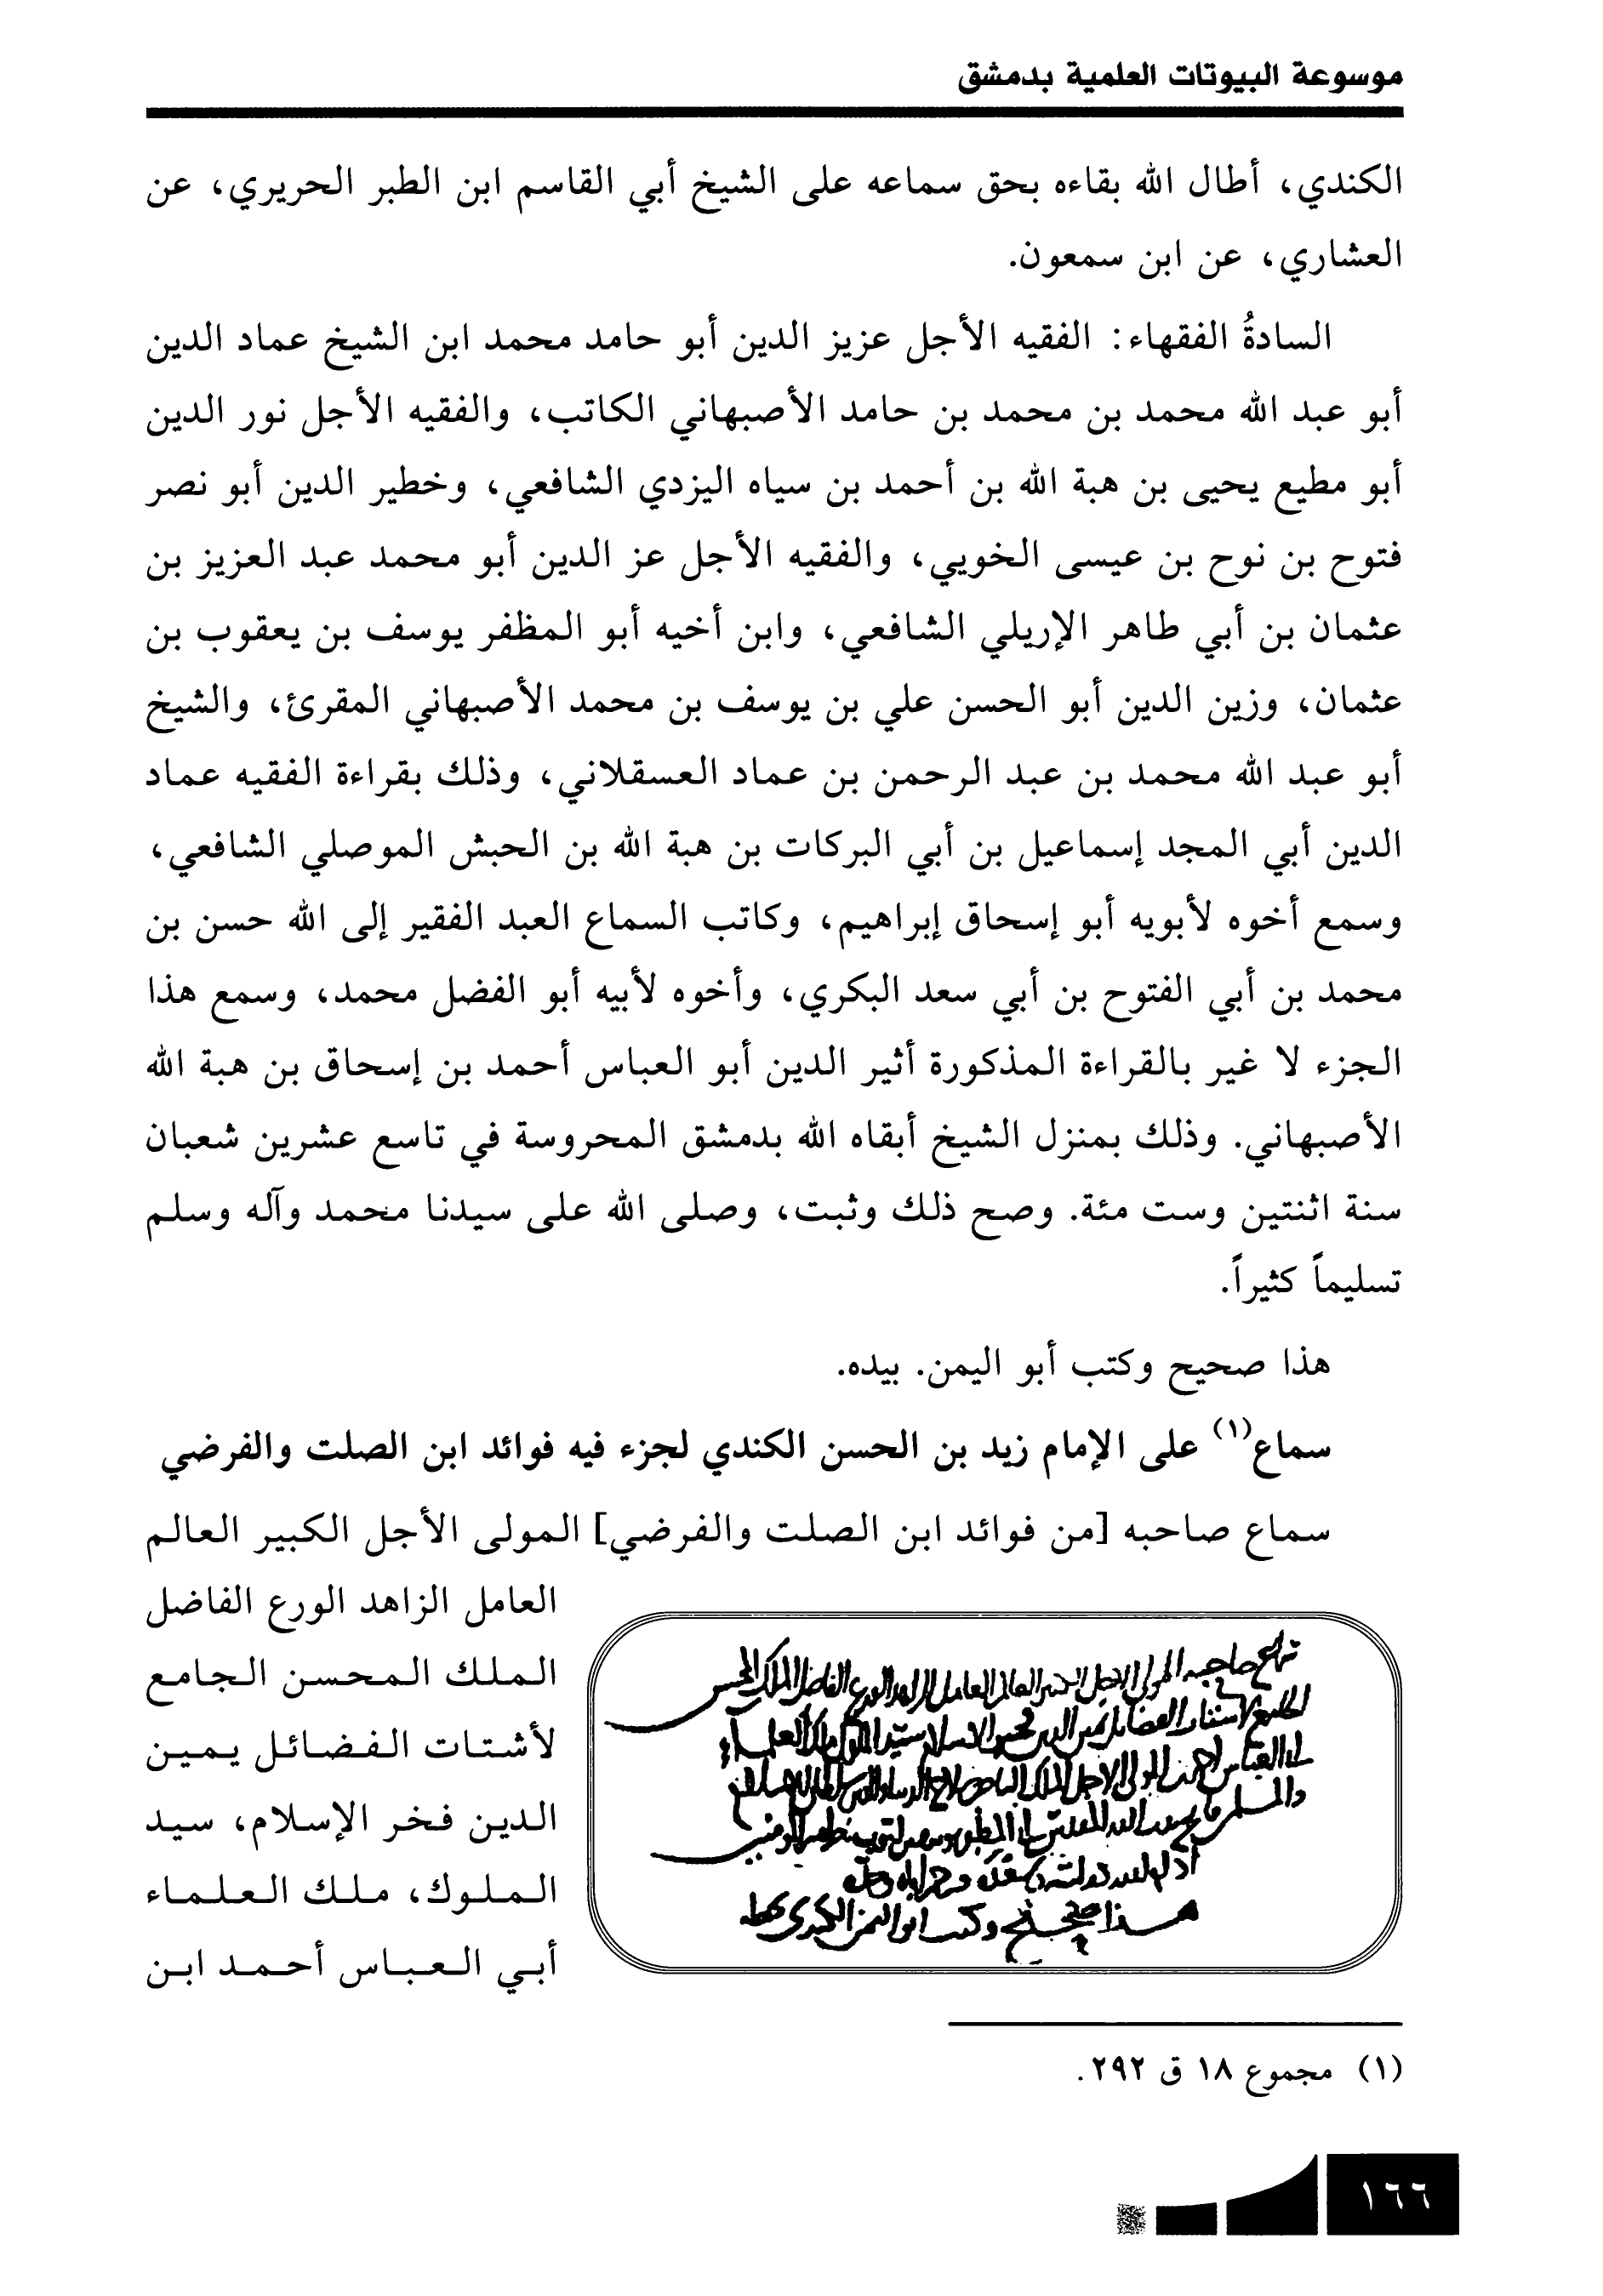 موسوعة البيوتات العلمية بدمشق
الكندي، أطال الله بقاءه بحق سماعه على الشيخ أبي القاسم ابن الطبر الحريري، عن
العشاري، عن ابن سمعون.
السادةُ الفقهاء: الفقيه الأجل عزيز الدين أبو حامد محمد ابن الشيخ عماد الدين
أبو عبد الله محمد بن محمد بن حامد الأصبهاني الكاتب، والفقيه الأجل نور الدين
أبو مطيع يحيى بن هبة الله بن أحمد بن سياه اليزدي الشافعي، وخطير الدين أبو نصر
فتوح بن نوح بن عيسى الخويي، والفقيه الأجل عز الدين أبو محمد عبد العزيز بن
عثمان بن أبي طاهر الإريلي الشافعي، وابن أخيه أبو المظفر يوسف بن يعقوب بن
عثمان، وزين الدين أبو الحسن علي بن يوسف بن محمد الأصبهاني المقرئ، والشيخ
أبو عبد الله محمد بن عبد الرحمن بن عماد العسقلاني، وذلك بقراءة الفقيه عماد
الدين أبي المجد إسماعيل بن أبي البركات بن هبة الله بن الحبش الموصلي الشافعي،
وسمع أخوه لأبويه أبو إسحاق إبراهيم، وكاتب السماع العبد الفقير إلى الله حسن بن
محمد بن أبي الفتوح بن أبي سعد البكري، وأخوه لأبيه أبو الفضل محمد، وسمع هذا
الجزء لا غير بالقراءة المذكورة أثير الدين أبو العباس أحمد بن إسحاق بن هبة الله
الأصبهاني. وذلك بمنزل الشيخ أبقاه الله بدمشق المحروسة في تاسع عشرين شعبان
سنة اثنتين وست مئة. وصح ذلك وثبت، وصلى الله على سيدنا محمد وآله وسلم
تسليماً كثيراً.
هذا صحيح وكتب أبو اليمن. بيده.
سماع(١) على الإمام زيد بن الحسن الكندي لجزء فيه فوائد ابن الصلت والفرضي
سماع صاحبه [من فوائد ابن الصلت والفرضي] المولى الأجل الكبير العالم
العامل الزاهد الورع الفاضل
الملك المحسن الجامع
لأشتات الفضائل يمين
الدين فخر الإسلام، سيد
الملوك، ملك العلماء
أبي العباس أحمد ابن
سماع صاحبه المولى الاجل الكبير العالم العامل الزاهد الورع الفاضل الملك المحسن
هذا صحيح وكتب ابو اليمن الكندي بخطه
(١) مجموع ١٨ ق ٢٩٢.
١٦٦